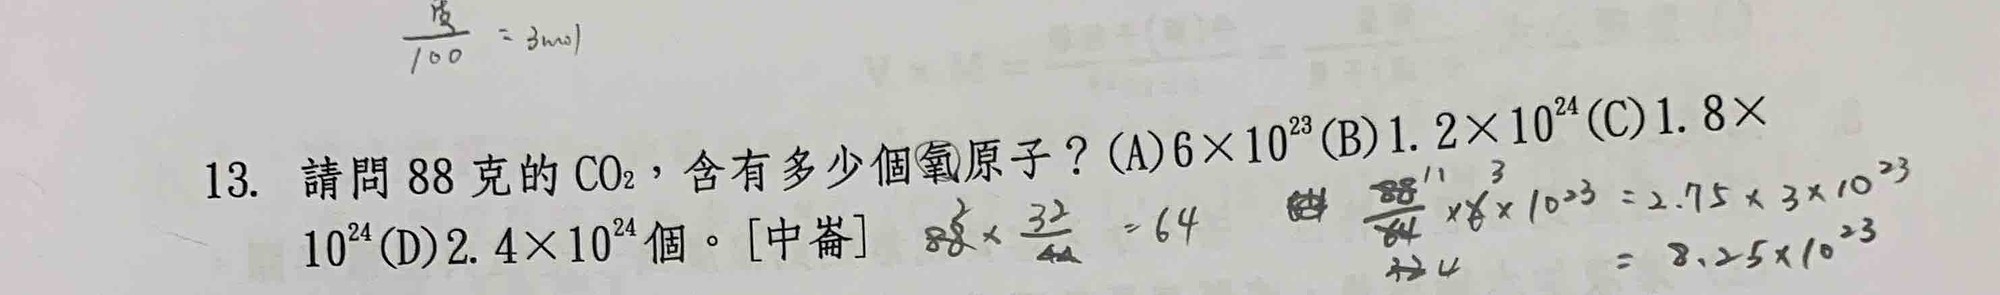 度/100 = 3mol
13. 請問 88 克的 CO₂，含有多少個氧原子？(A)6×10²³(B)1.2×10²⁴(C)1.8×
10²⁴(D)2.4×10²⁴個。[中崙] 88² × 32/44 = 64
88¹¹/64 × 6³ × 10²³ = 2.75 × 3 × 10²³
32 4 = 8.25×10²³